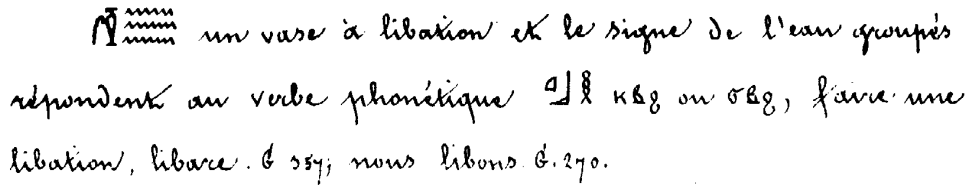 𓏁𓈗 un vase à libation et le signe de l'eau groupés
répondent au verbe phonétique 𓈎𓃀𓎛 ⲕⲃϩ ou ϭⲃϩ, faire une
libation, libare. G 357; nous libons G. 270.